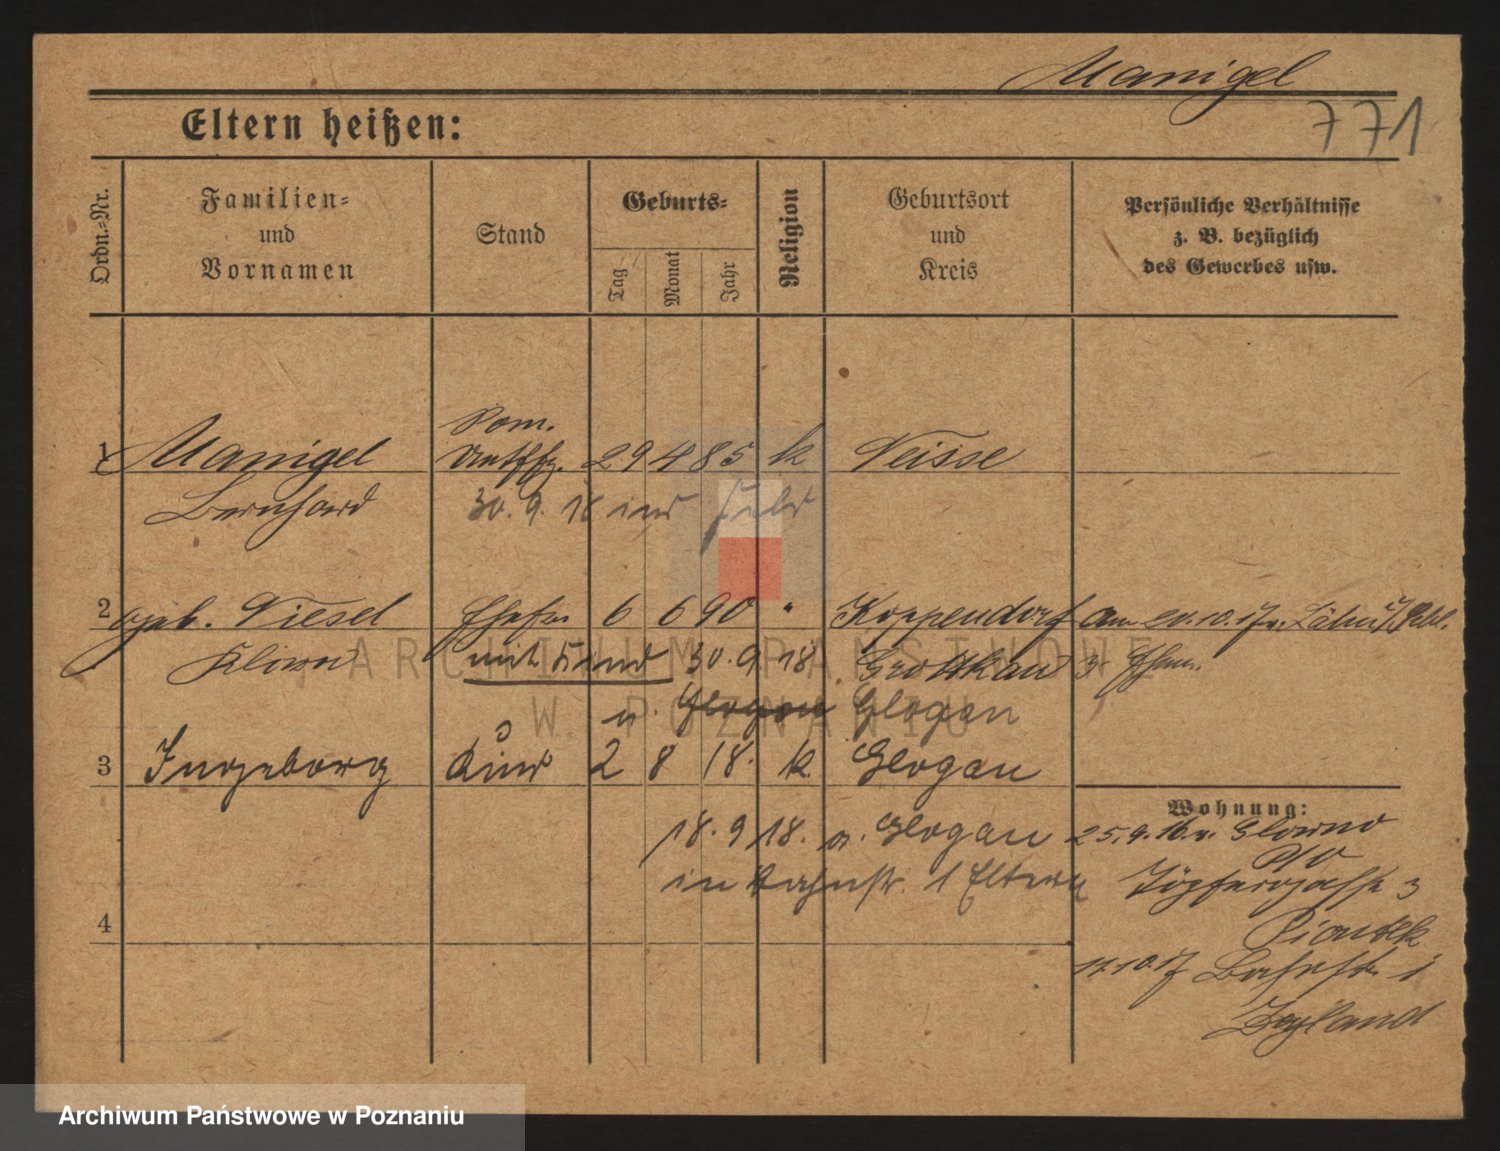 Manigel
771
Eltern heißen:
Ordn.-Nr.
Familien-
und
Vornamen
Stand
Geburts-
Tag
Monat
Jahr
Religion
Geburtsort
und
Kreis
Persönliche Verhältnisse
z. B. bezüglich
des Gewerbes usw.
1 Manigel Dom. 29 4 85 k Neisse
Bernhard 30. 9. 18 ins Feld
2 geb. Niesel Ehefr. 6 6 90 " Koppendorf am 10. 17 v.
mit Kind 30. 9 18 Grottkau
n. Glogau Glogau
3 Ingeborg Kind 2 8 18. k. Glogau
18. 9 18. v. Glogau
in Bahnstr. 1 Eltern
4
Wohnung:
25. 9. 16. v. Glowno
Töpfergasse 3
Piontek
11. 10. 17 Bahnstr. 1
ARCHIWUM PAŃSTWOWE
W POZNANIU
Archiwum Państwowe w Poznaniu